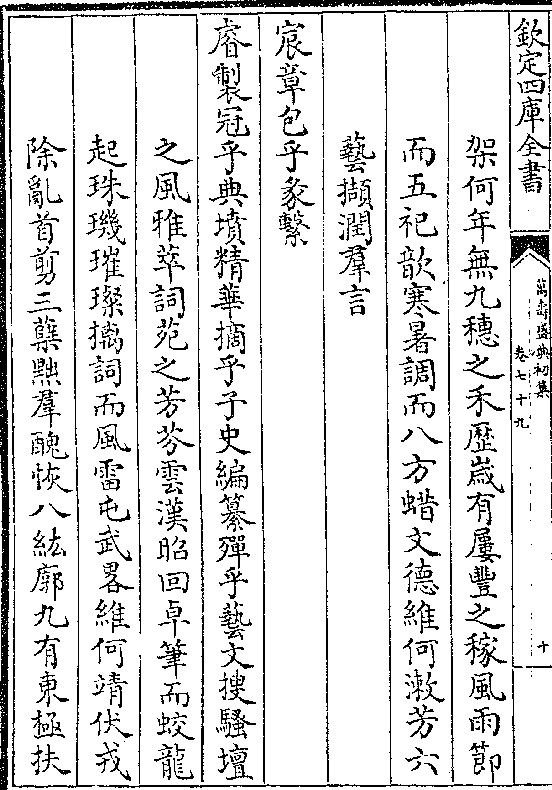 欽定四庫全書
萬壽盛典初集
卷七十九
十
架何年無九穗之禾歷嵗有屢豐之稼風雨節
而五祀歆寒暑調而八方蜡文德維何漱芳六
藝擷潤羣言
宸章包乎彖繫
睿製冠乎典墳精華摘乎子史編纂殫乎藝文搜騷壇
之風雅萃詞苑之芳芬雲漢昭回卓筆而蛟龍
起珠璣璀璨摛詞而風雷屯武畧維何靖伏戎
除亂首剪三蘖㸃羣醜恢八紘廓九有東極扶